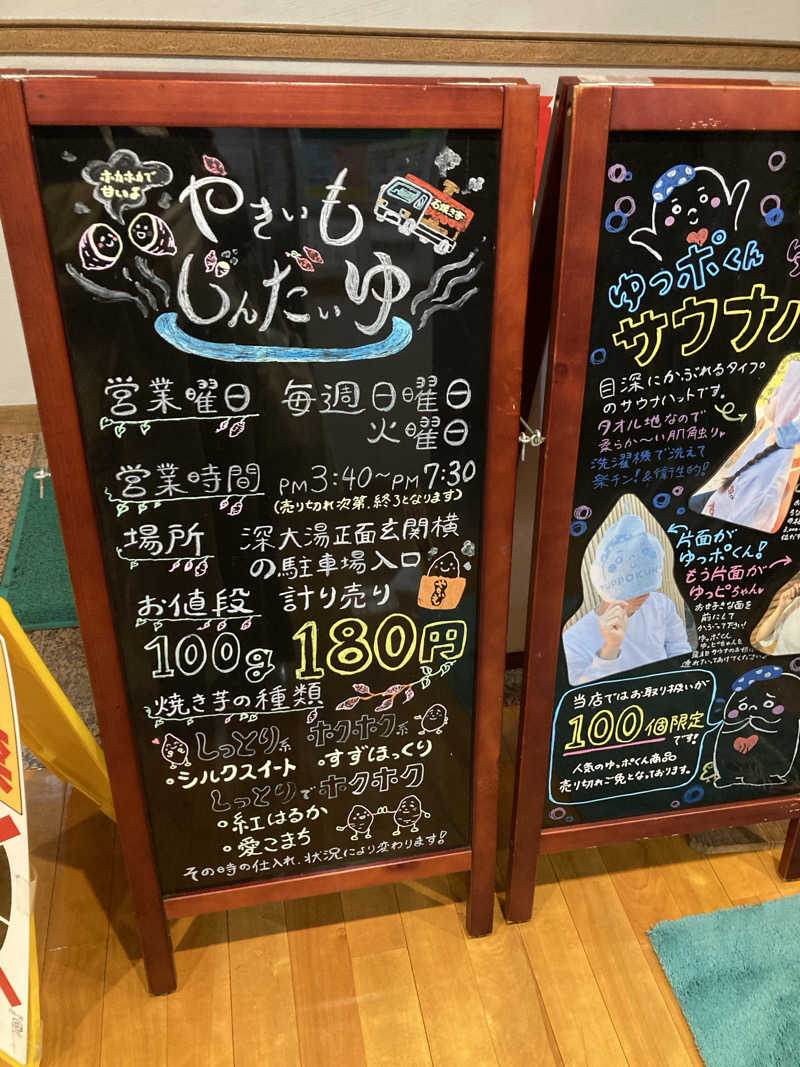 ホカホカで
甘いよ
やきいも
じんたいゆ
石焼き芋
営業曜日 毎週日曜日
火曜日
営業時間 PM3:40〜PM7:30
(売り切れ次第、終了となります)
場所 深大湯正面玄関横
の駐車場入口
お値段 計り売り
100g 180円
焼き芋の種類
しっとり系 ホクホク系
・シルクスイート ・すずほっくり
しっとりでホクホク
・紅はるか
・愛こまち
その時の仕入れ、状況により変わります!
ゆっポくん
サウナハ
目深にかぶれるタイプ
のサウナハットです。
タオル地なので
柔らか〜い肌触り♥
洗濯機で洗えて
楽チン!&衛生的!
片面が
ゆっポくん!
もう片面が
ゆっピちゃん♥
お好きな面を
前にして
かぶって下さい!
YUPPOKUN
当店ではお取り扱いが
100個限定
です!
人気のゆっポくん商品
売り切れご免となっております。